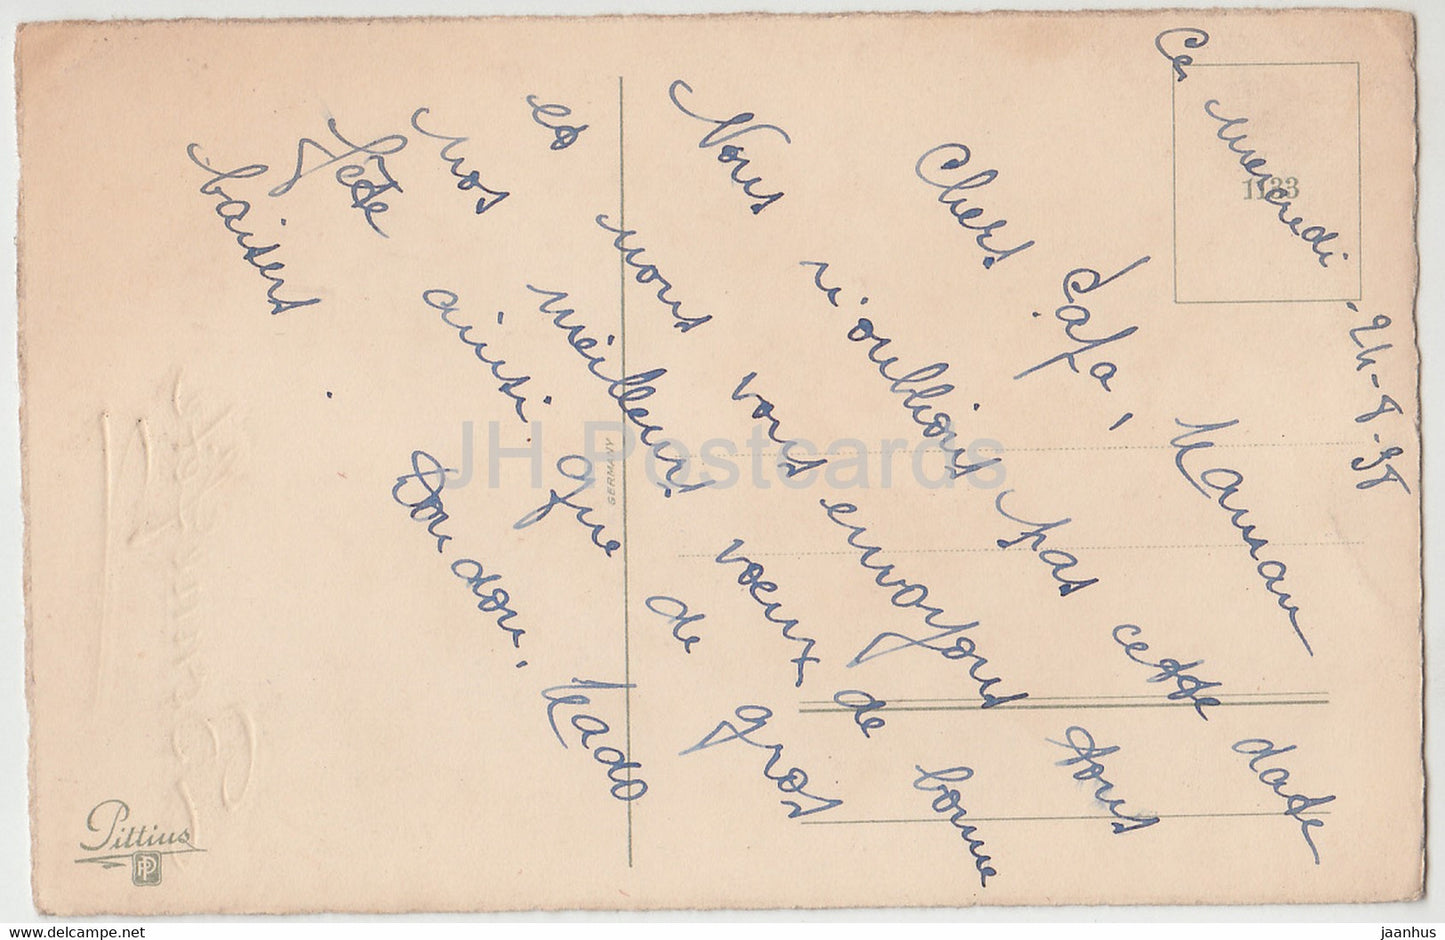 Ce mercredi 24-8-38
Chers Papa, Maman
Nous n'oublions pas cette date
et nous vous envoyons tous
nos meilleurs voeux de bonne
fête ainsi que de gros
baisers.
Doudou, Mado
1133
GERMANY
Pittius
PP
JH Postcards
jaanhus
www.delcampe.net